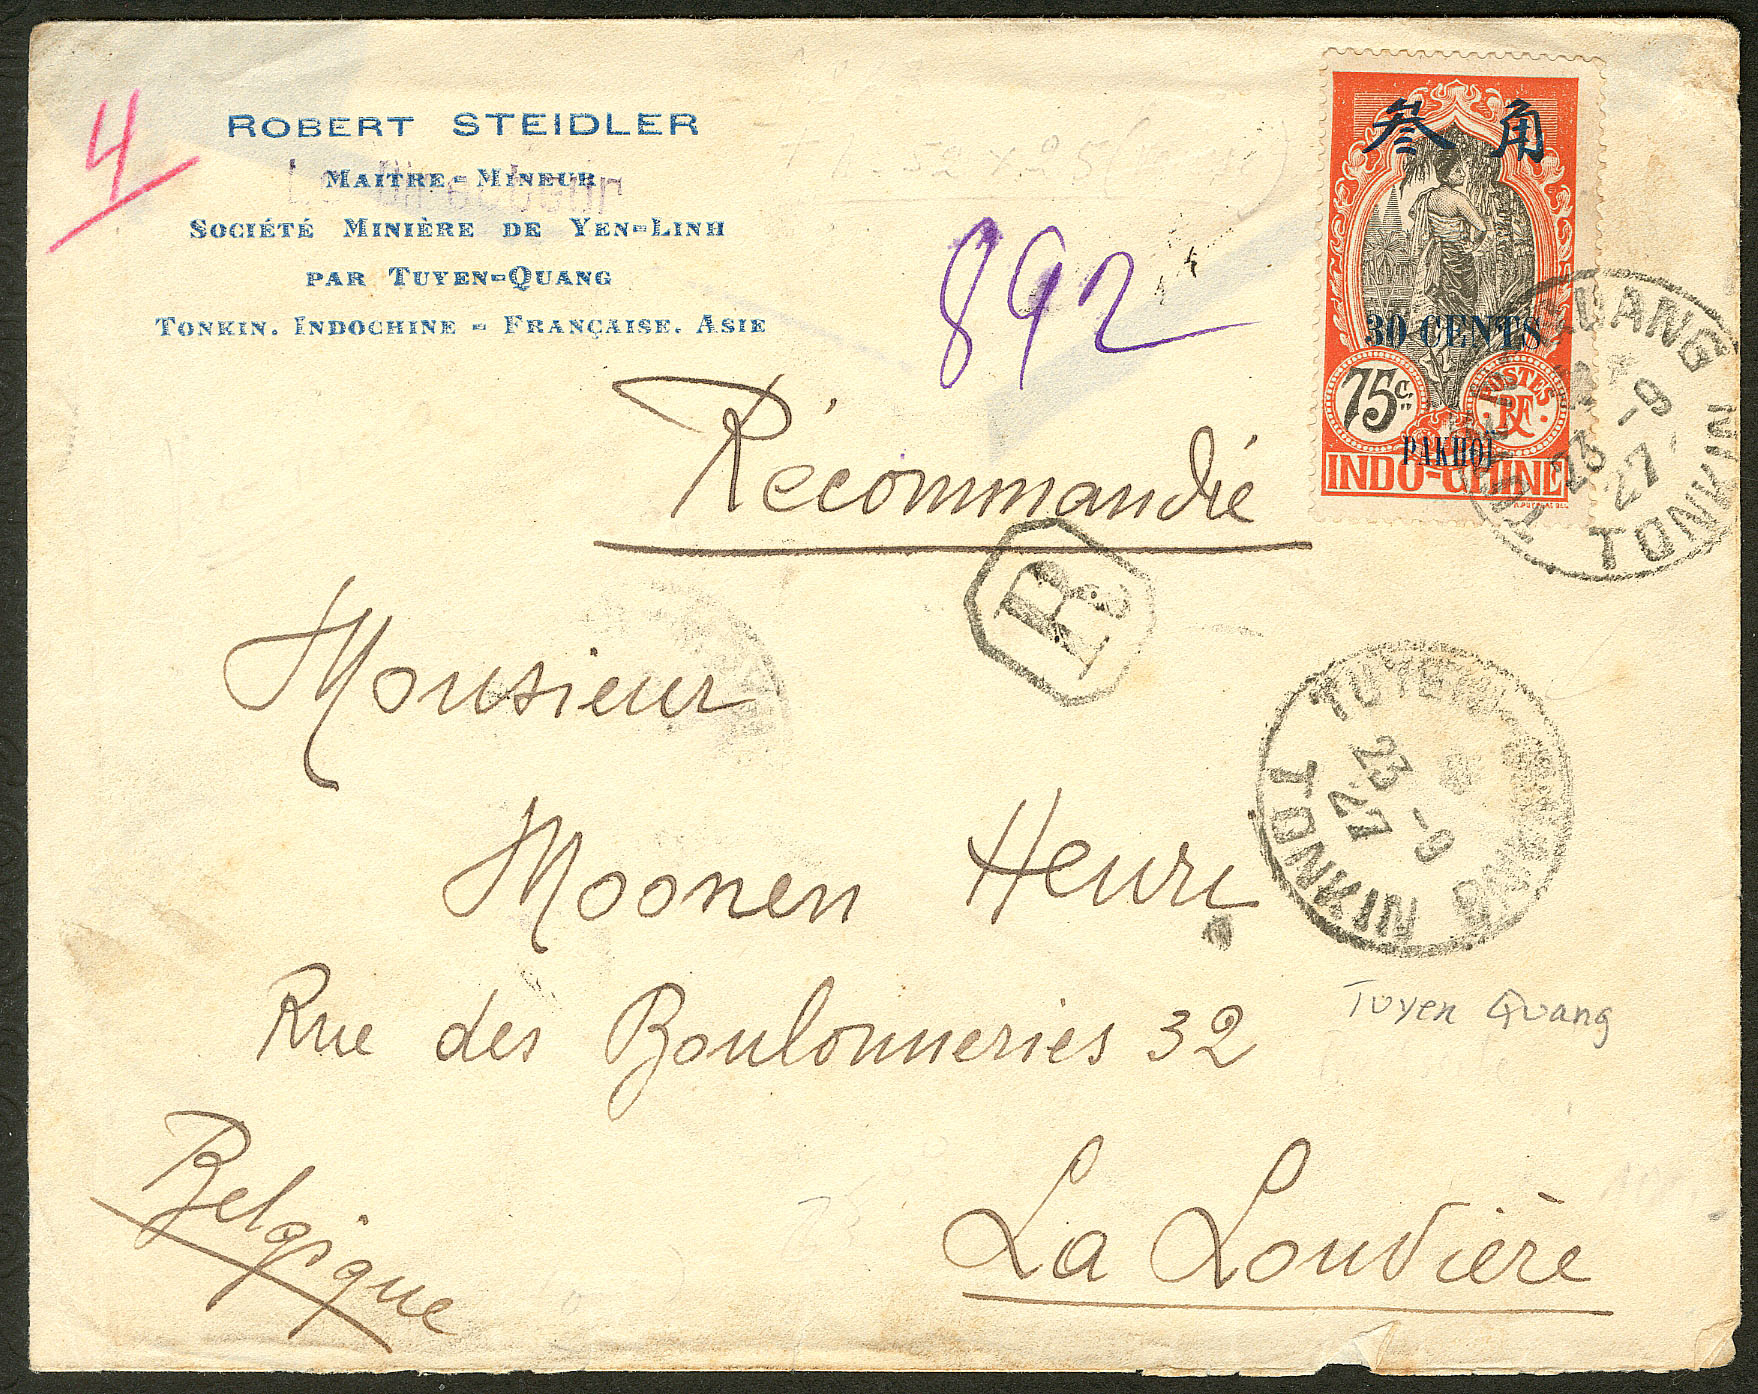 4
ROBERT STEIDLER
MAITRE-MINEUR
SOCIÉTÉ MINIÈRE DE YEN-LINH
PAR TUYEN-QUANG
TONKIN. INDOCHINE - FRANÇAISE. ASIE
892
叁 角
30 CENTS
75c.
POSTES
RF
PAKHOI
INDO-CHINE
TUYEN QUANG
23 -9
27
TONKIN
Récommandée
R
Monsieur
TUYEN QUANG
23 -9
27
TONKIN
Moonen Henri
Rue des Boulonneries 32
Tuyen Quang
Belgique
La Louvière